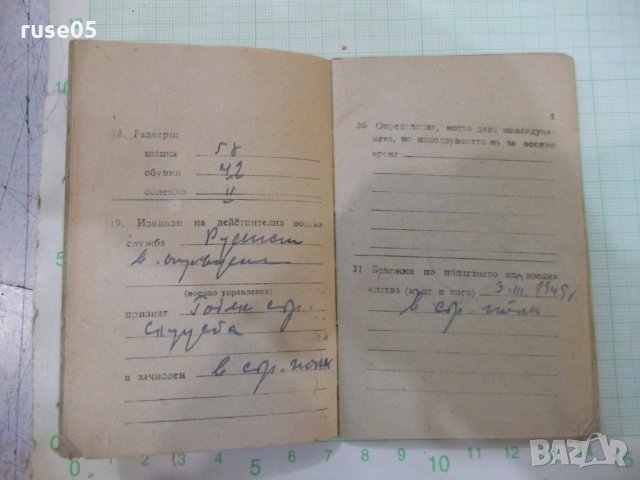 ruse05
18. Размери:
шапка 58
обувки 42
облекло II
19. Извикан на действителна военна
служба Русенско
в.
(военно управление)
признат Годен стр.
служба
и зачислен в стр. полк
20 Определение, което дава командува-
нето, по използуването му за военно
време
21 Бележки по полагането на военна
клетва (къде и кого) 3.III.1949 г.
в стр. полк
BAZAR